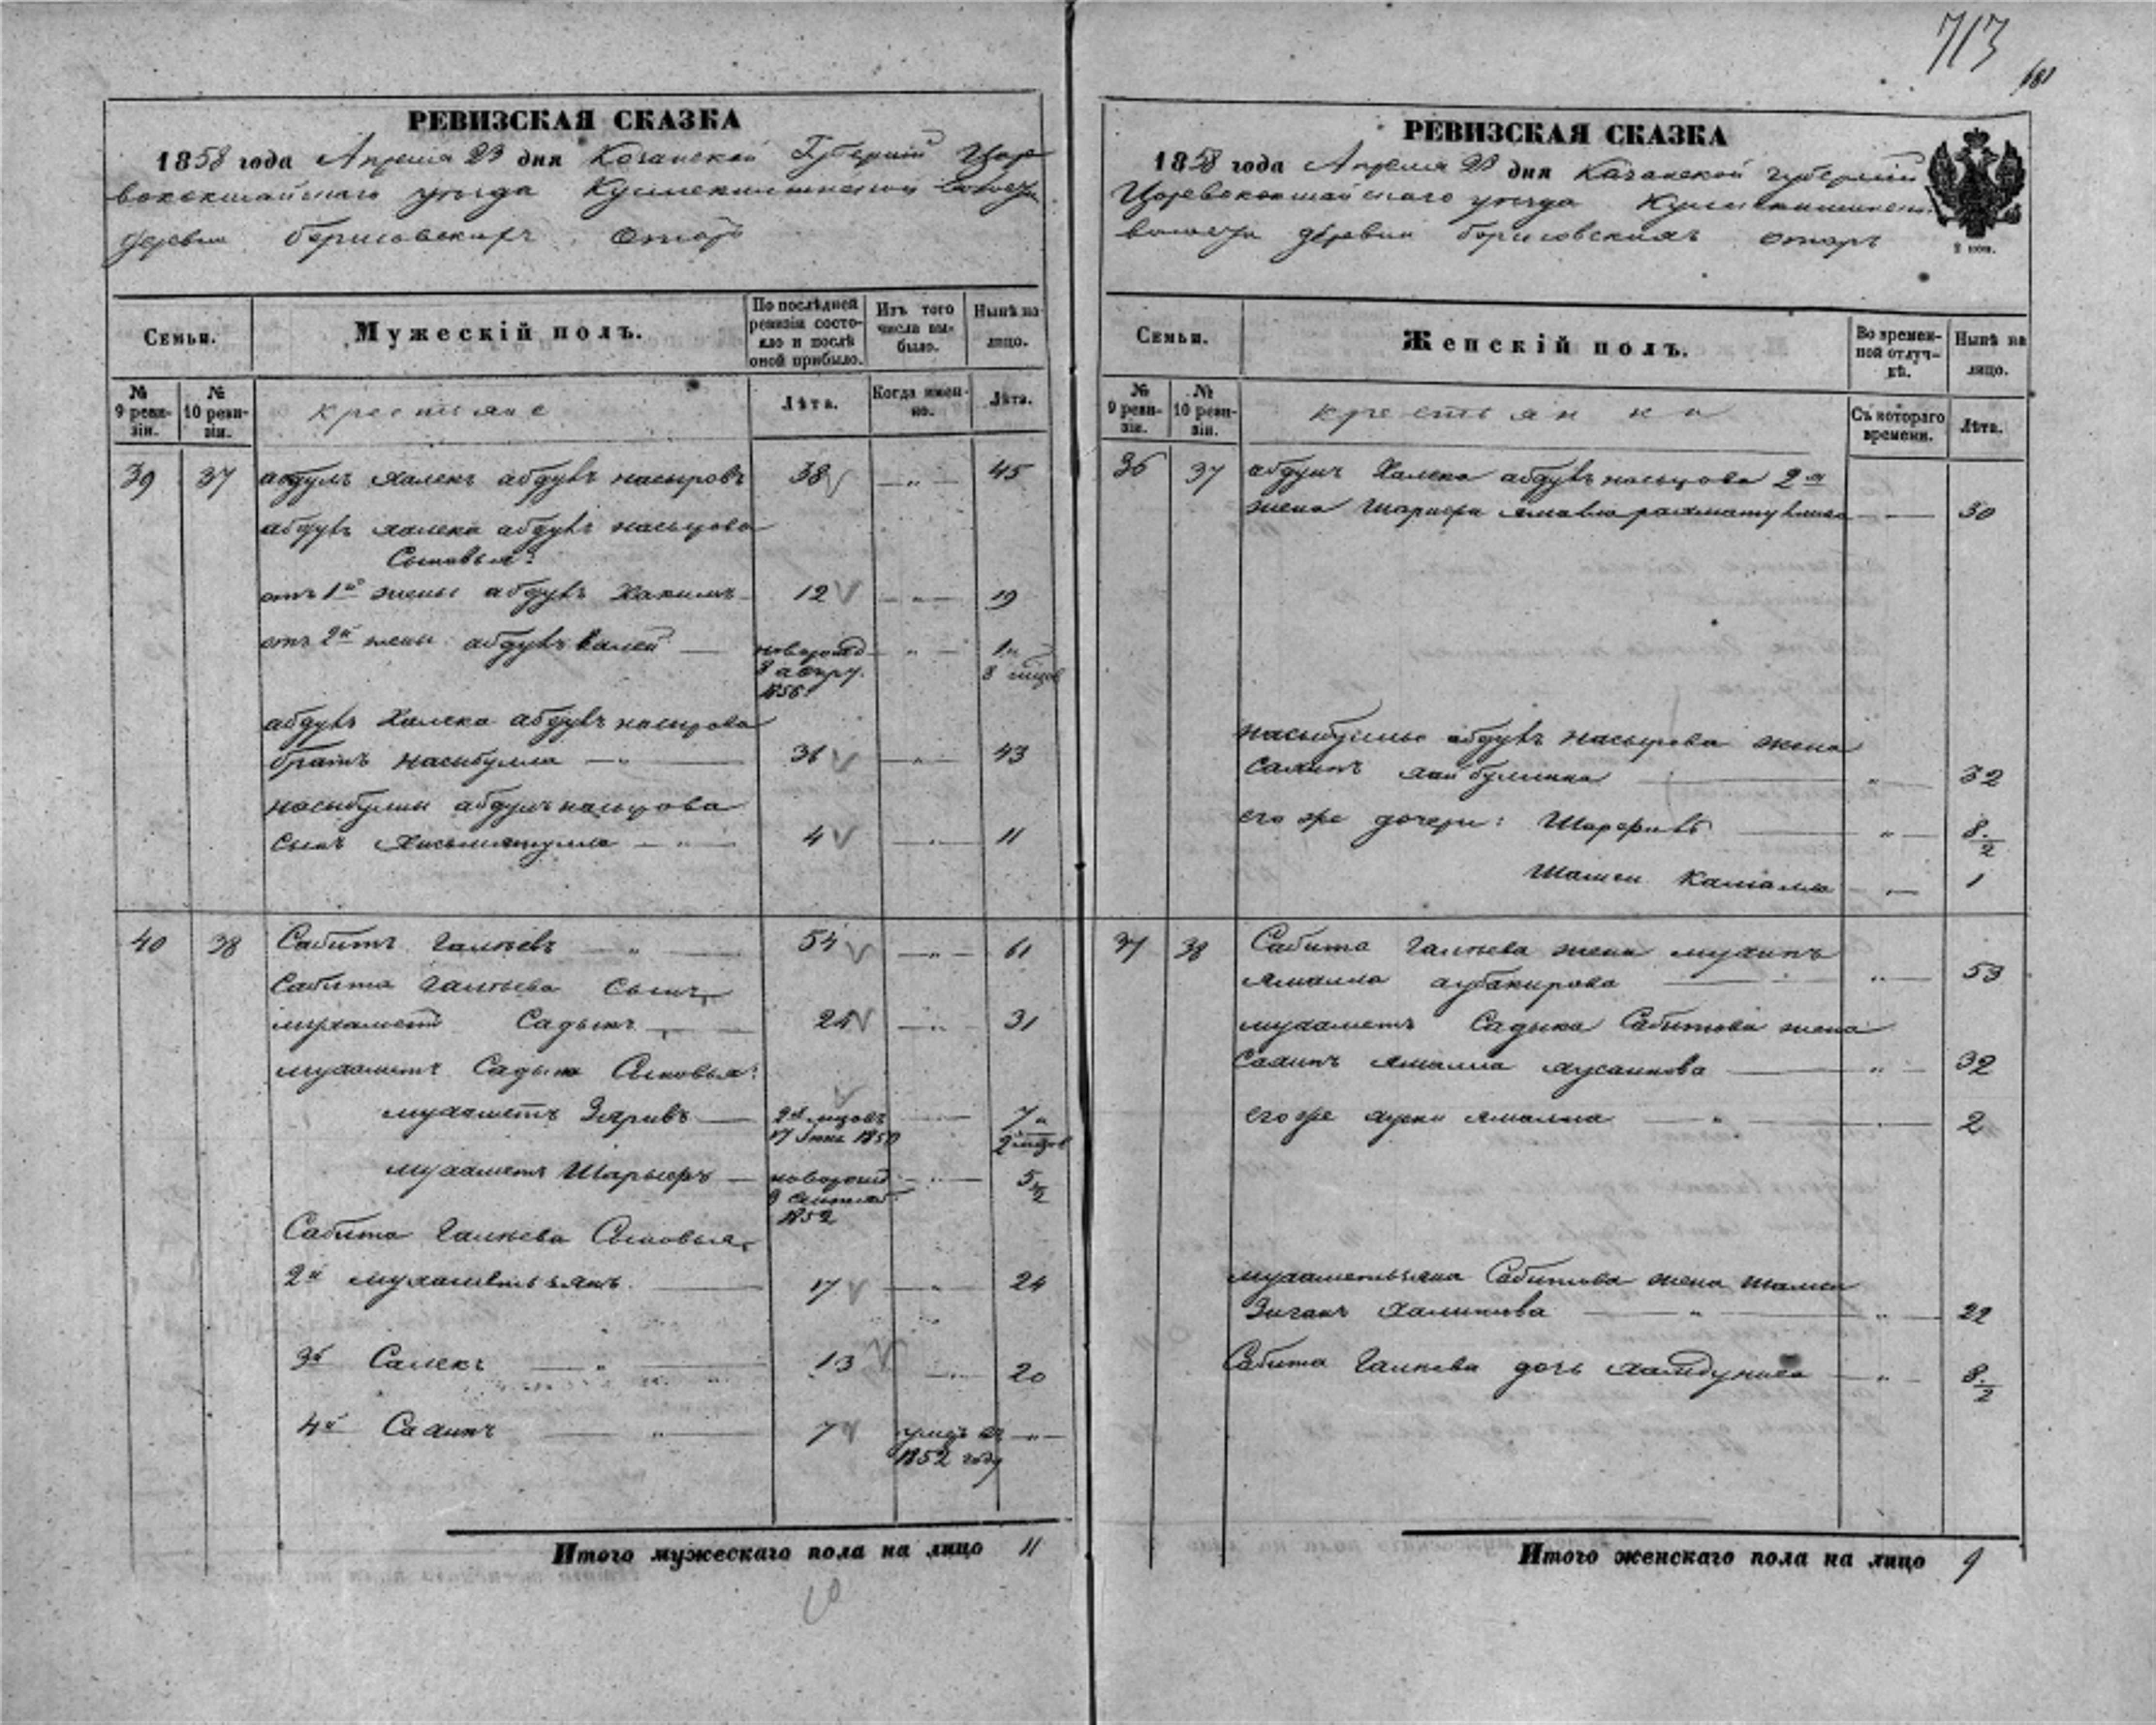 713
681
РЕВИЗСКАЯ СКАЗКА
1858 года Апреля 23 дня Казанской Губерніи Царе
вококшайскаго уезда
деревни Борисовскихъ Отаръ
Семьи.
Мужескій полъ.
По послѣдней ревизіи состояло и послѣ оной прибыло.
Изъ того числа выбыло.
Нынѣ на лицо.
№ 9 ревизіи.
№ 10 ревизіи.
крестьяне
Лѣта.
Когда именно.
Лѣта.
39 37 абдулъ Халекъ абдулъ насыровъ 38 — „ — 45
абдулъ Халека абдулъ насырова
Сыновья:
отъ 1й жены абдулъ Хакимъ 12 — „ — 19
отъ 2й жены абдулъ Валей — новорожд — „ — 1 и
8
1856.
8 мцов
абдулъ Халека абдулъ насырова
братъ насыбулла — „ — 36 — „ — 43
насыбуллы абдулъ насырова
сынъ Хисьматулла — „ — 4 — „ — 11
40 38 Сабитъ Галѣевъ — „ — 54 — „ — 61
Сабита Галѣева Сынъ
мухаметъ Садыкъ 24 — „ — 31
мухаметъ Садыка Сыновья:
мухаметъ Заривъ — мцовъ 7 и
17 1850 2 мцов
мухаметъ Шарыфъ — новорожд — „ — 5 1/2
9 сентяб
1852
Сабита Галѣева Сыновья
2й мухаметьзянъ 17 — „ — 24
3й Салекъ — „ — 13 — „ — 20
4й Сахипъ — „ — 7 умеръ въ — „ —
1852 году
Итого мужескаго пола на лицо 11
10
РЕВИЗСКАЯ СКАЗКА
1858 года Апреля 23 дня Казанской губерніи
Царевококшайскаго уезда
волости деревни Борисовскихъ отаръ
2 коп.
Семьи.
Женскій полъ.
Во временной отлучкѣ.
Нынѣ на лицо.
№ 9 ревизіи.
№ 10 ревизіи.
крестьянки
Съ котораго времени.
Лѣта.
36 37 абдулъ Халека абдулъ насырова 2я
жена — 30
насыбуллы абдулъ насырова жена
Сахипъ хайбуллина — „ — 32
его же дочери: — „ — 8 1/2
Шамси Камалла — „ — 1
37 38 Сабита Галѣева жена
ямалла аубакирова — „ — 53
мухаметъ Садыка Сабитова жена
Сахипъ ямалла хусаинова — „ — 32
его же ямалла — „ — 2
мухаметьзяна Сабитова жена шамси
Зиганъ халитова — „ — 22
Сабита Галѣева дочь — „ — 8 1/2
Итого женскаго пола на лицо 9